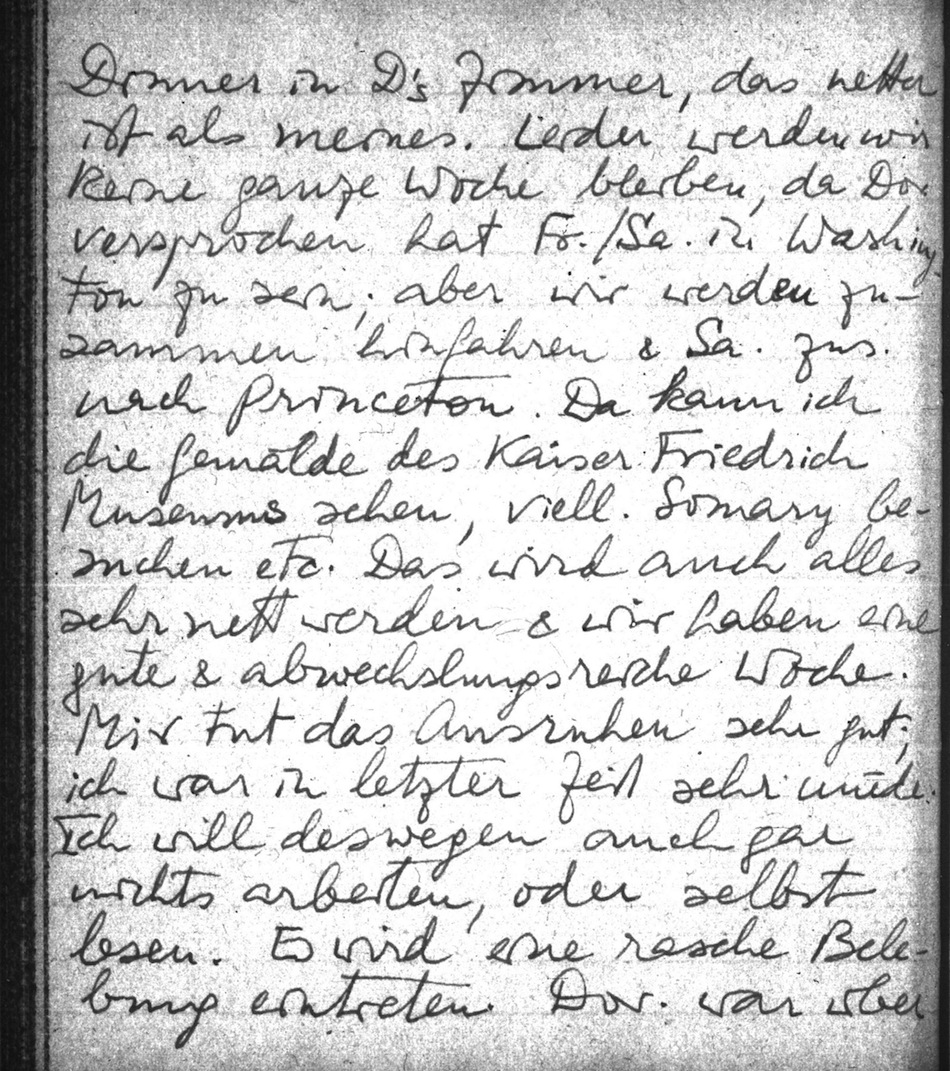 Dinner in D's Zimmer, das netter
ist als meines. Leider werden wir
keine ganze Woche bleiben, da Dor.
versprochen hat Fr./Sa. in Washing-
ton zu sein; aber wir werden zu-
sammen hinfahren & Sa. zus.
nach Princeton. Da kann ich
die Gemälde des Kaiser Friedrich
Museums sehen, viell. Somary be-
suchen etc. Das wird auch alles
sehr nett werden & wir haben eine
gute & abwechslungsreiche Woche.
Mir tut das Ausruhen sehr gut;
ich war in letzter Zeit sehr müde.
Ich will deswegen auch gar
nichts arbeiten, oder selbst
lesen. Es wird eine rasche Bele-
bung eintreten. Dor. war über